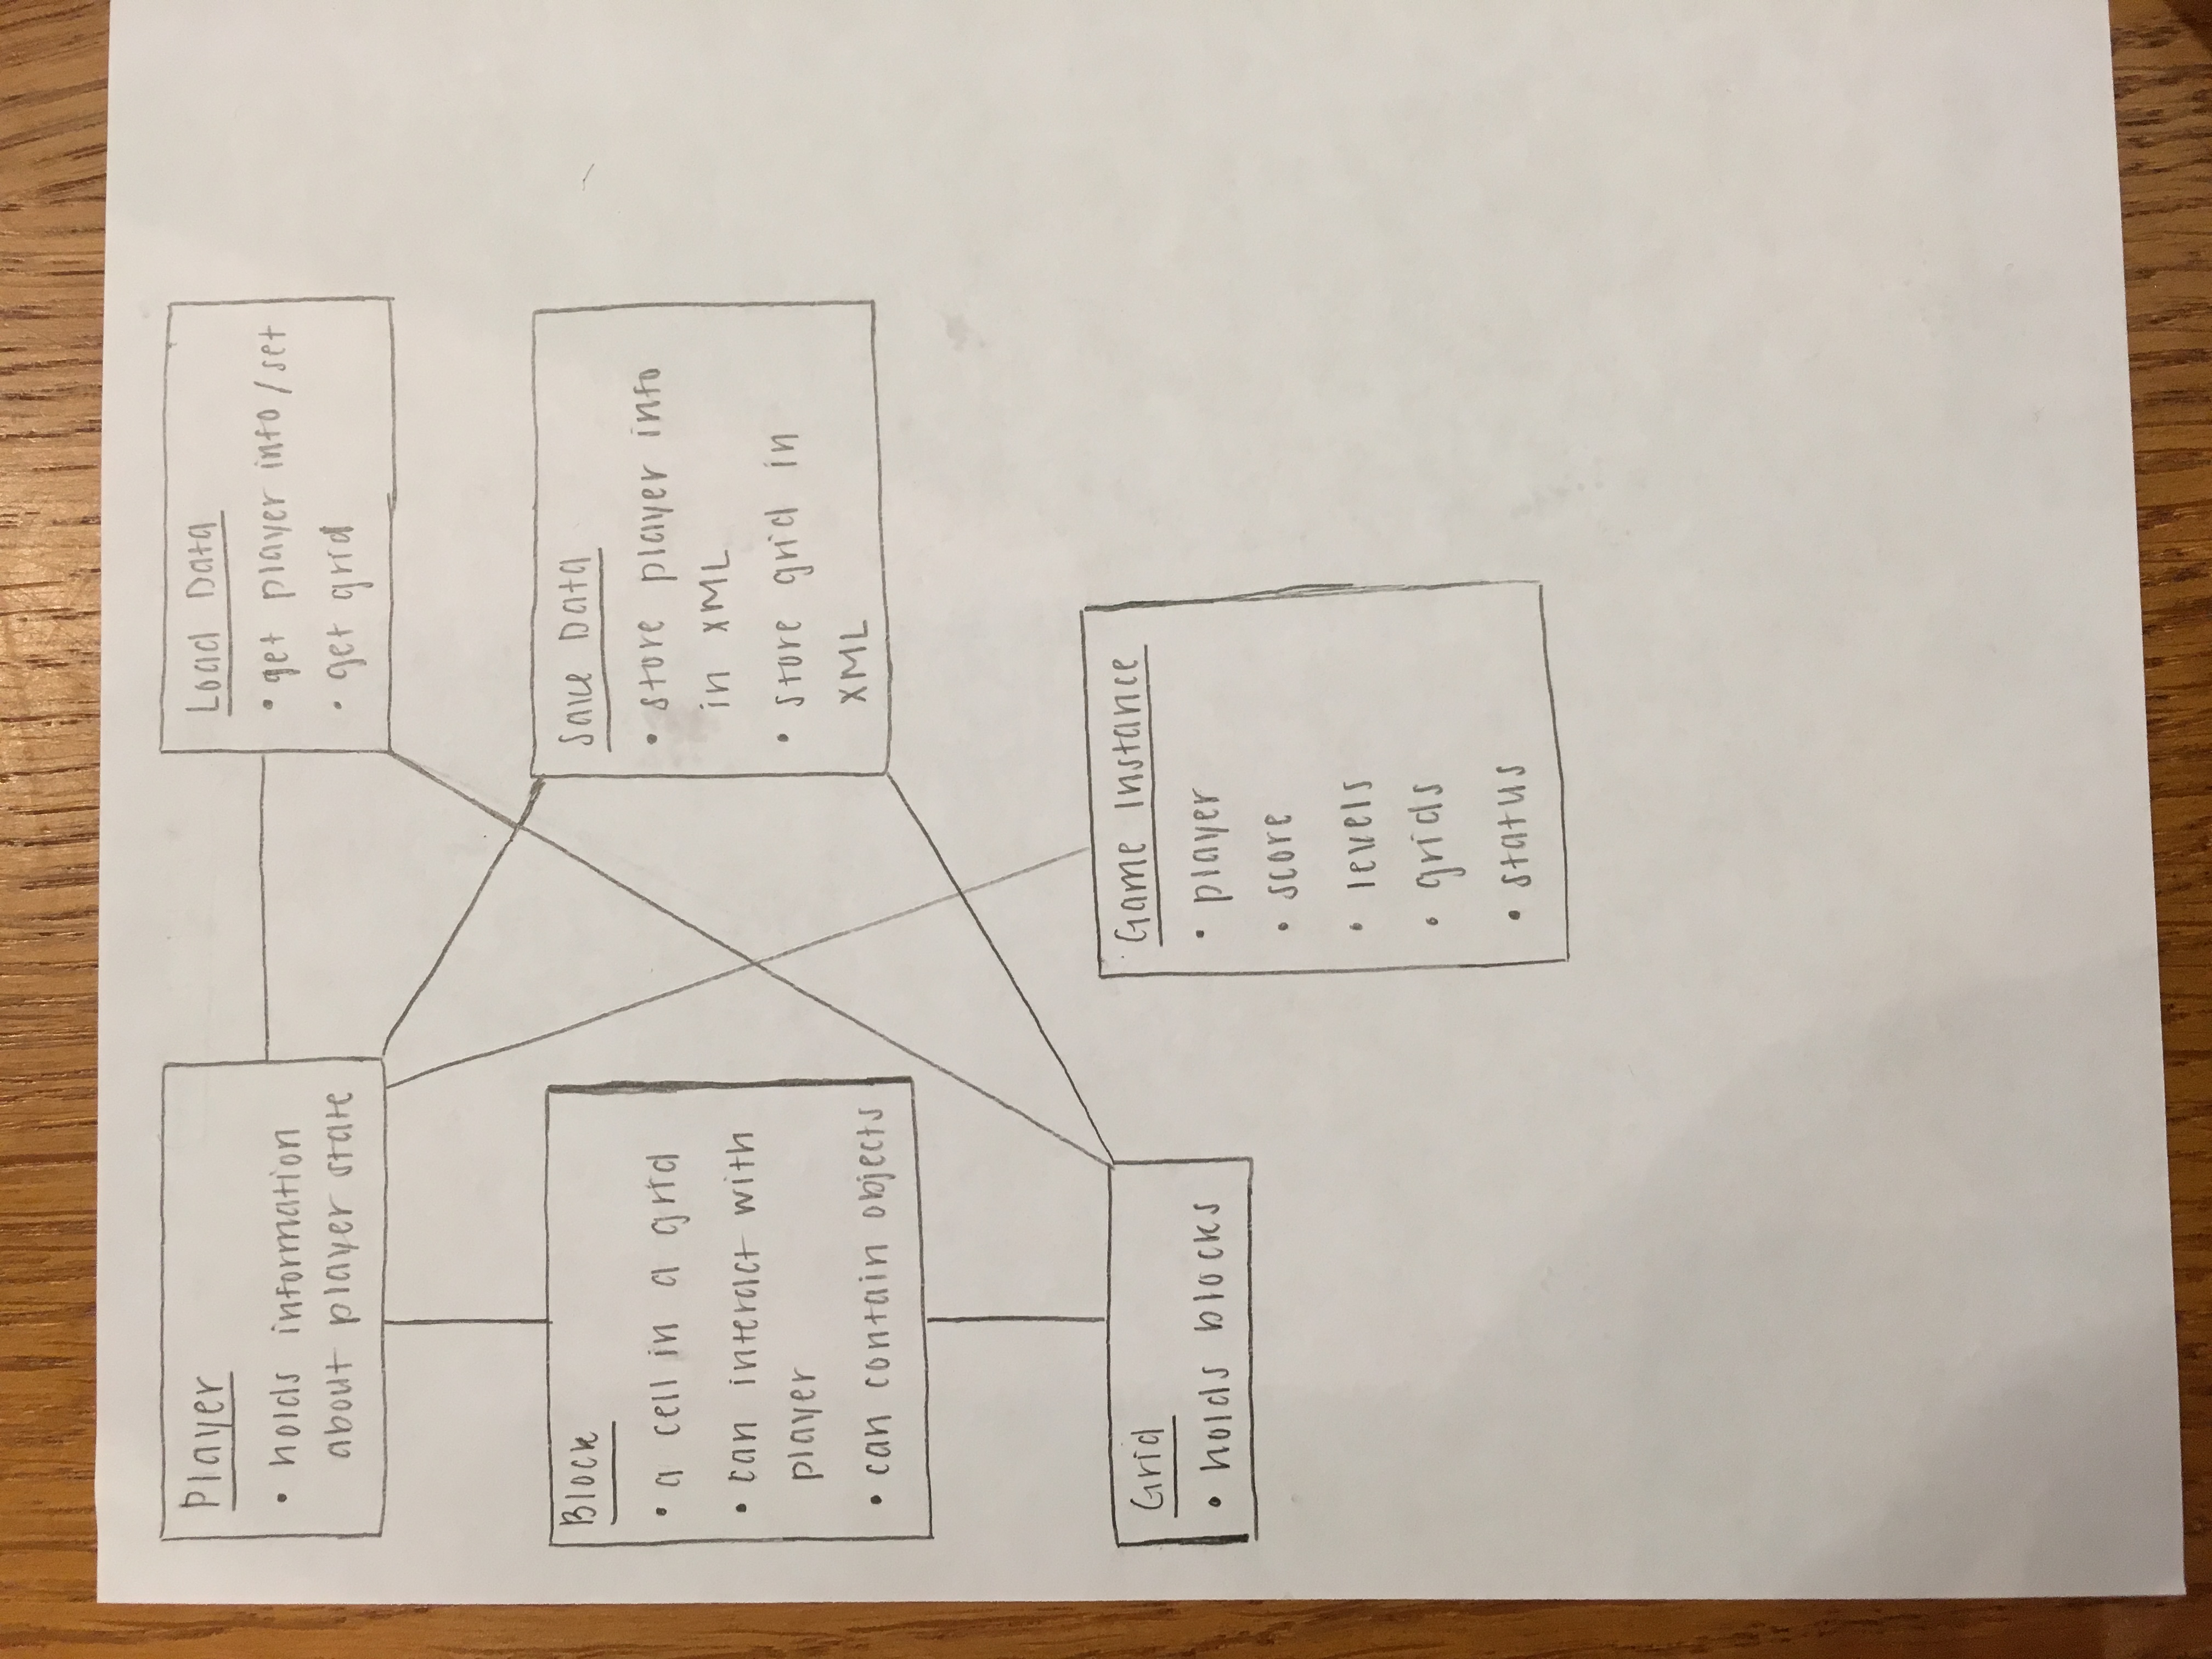 Player
• holds information
about player state
Load Data
• get player info / set
• get grid
Block
• a cell in a grid
• can interact with
player
• can contain objects
Save Data
• store player info
in XML
• store grid in
XML
Grid
• holds blocks
Game Instance
• player
• score
• levels
• grids
• status